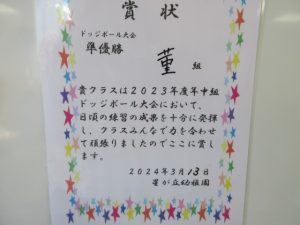 賞状
ドッジボール大会
準優勝
菫 組
貴クラスは２０２３年度年中組
ドッジボール大会において、
日頃の練習の成果を十分に発揮
し、クラスみんなで力を合わせ
て頑張りましたのでここに賞し
ます。
２０２４年３月１３日
星が丘幼稚園